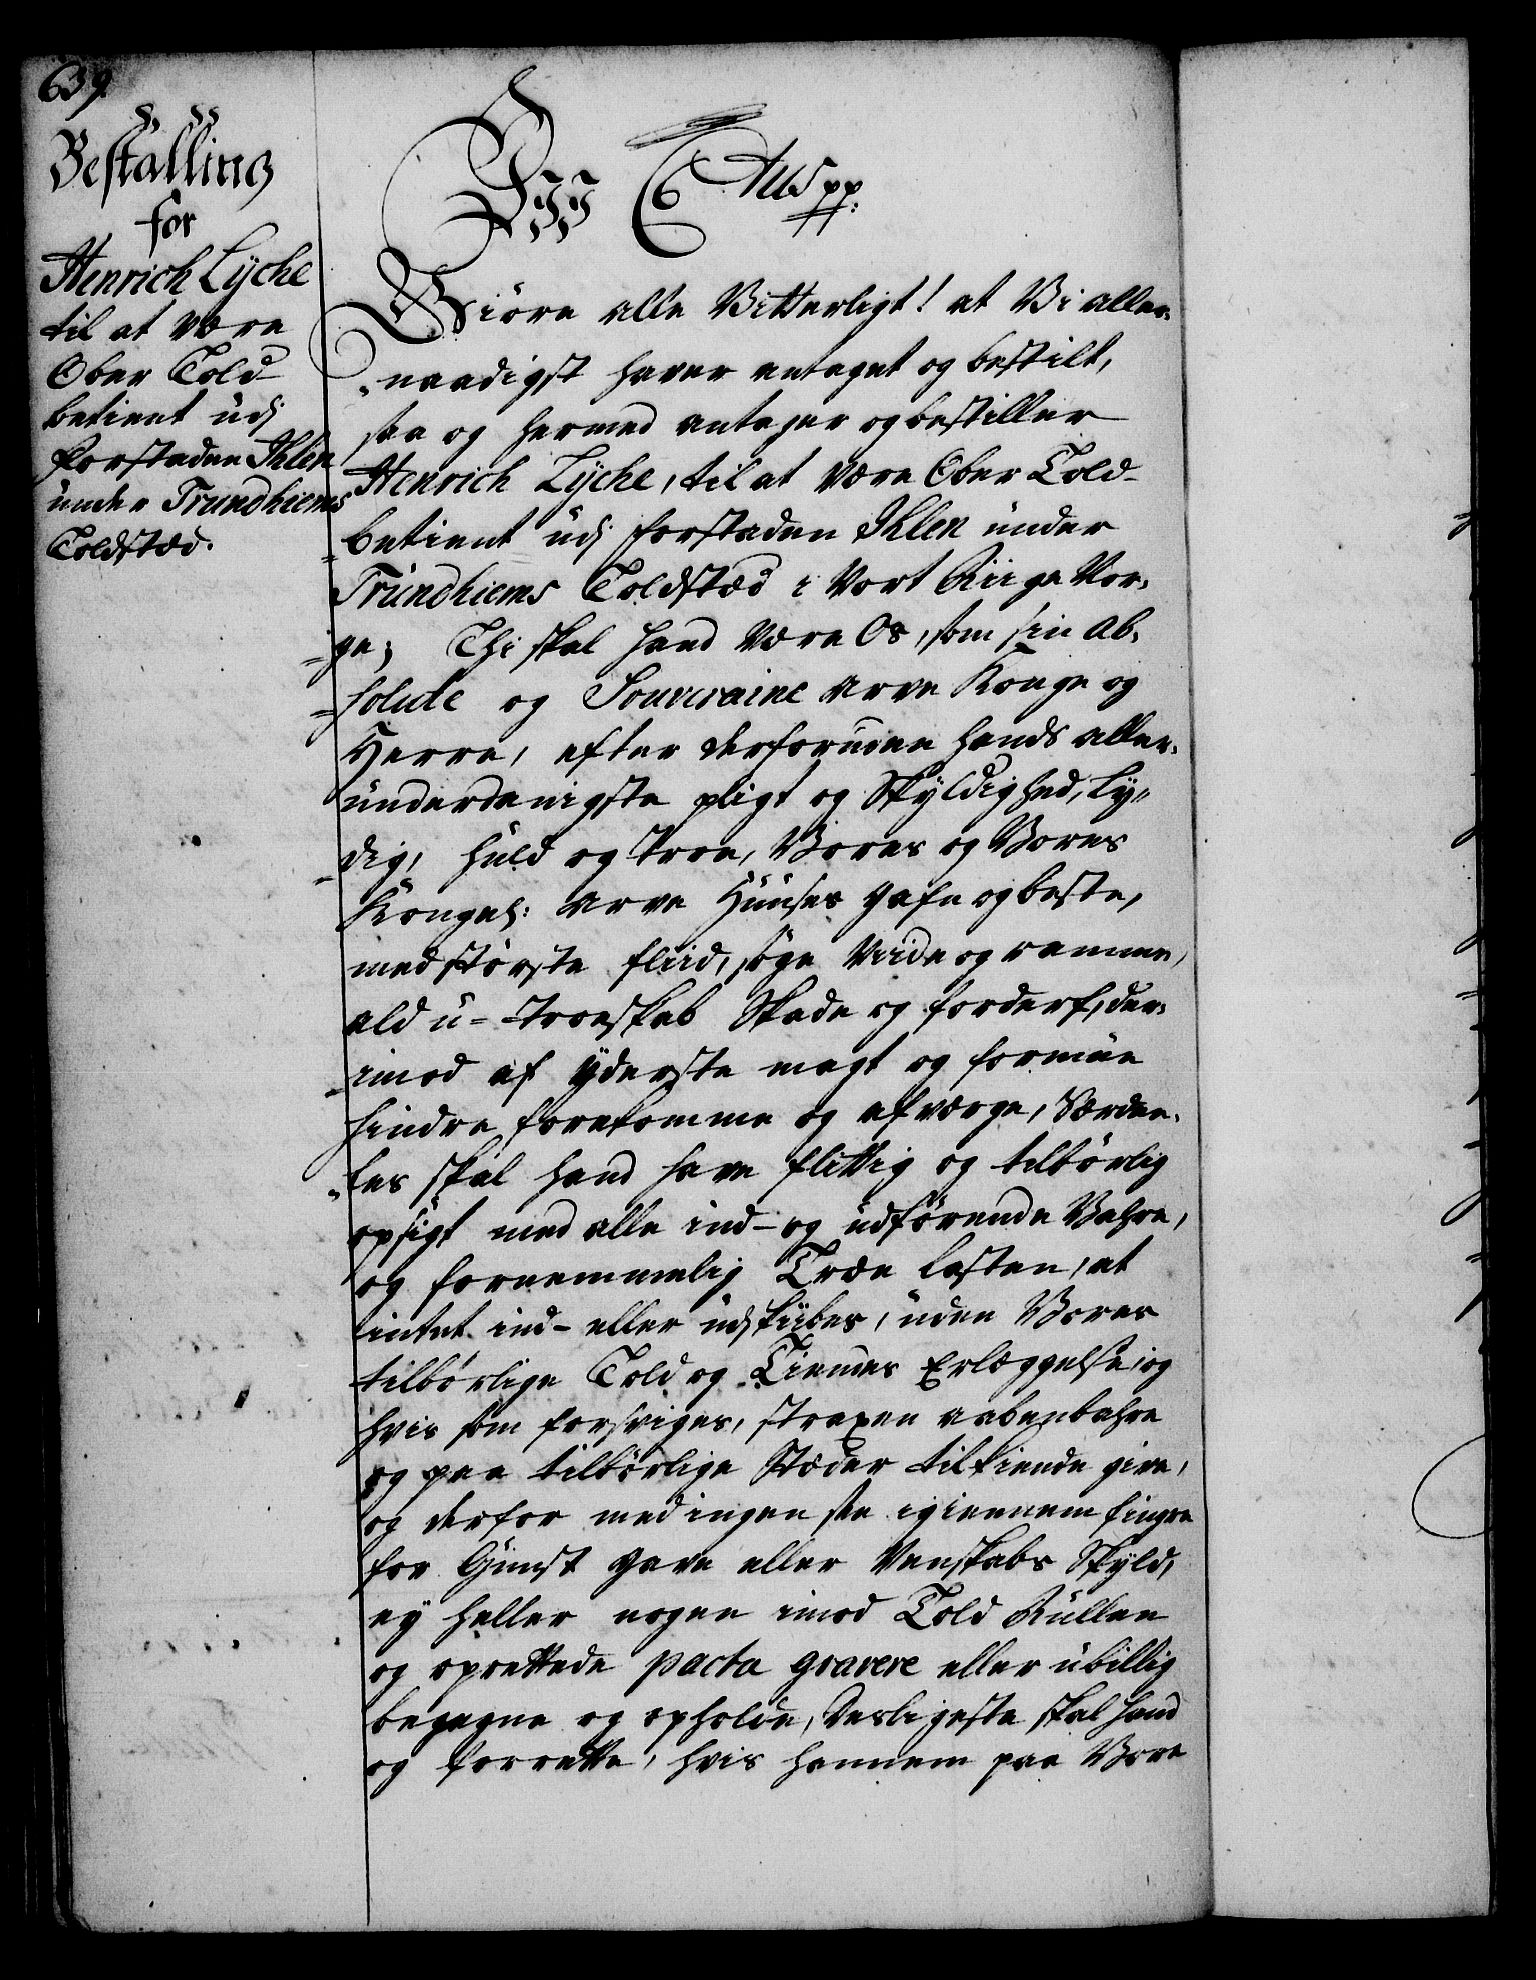 639.
Bestalling
for
Henrich Lÿche
til at være
Ober Told-
betient udj
Forstaden Ihlen
under Trundhiems
Toldstæd.
Wy C Atus pp:
Giöre alle Vitterligt! at Vi aller-
naadigst haver antaget og bestilt,
saa og hermed antager og bestiller
Henrich Lÿche, til at være Ober Told-
betient udj Forstaden Ihlen under
Trundhiems Toldstæd i Vort Riige Nor-
ge; Thi skal hand være Os, som sin ab-
solute og Souveraine arve Konge og
Herre, efter derforuden hands aller-
underdanigste pligt og Skyldighed, ly-
dig, huld og troe, Vores og Vores
Kongel: arve Huuses gafn og beste,
med störste fliid, söge viide og ramme,
ald u-troeskab Skade og forderf, der-
imod af yderste magt og formue
hindre forekomme og afværge, Særdee-
les skal hand have flittig og tilbörlig
opsigt med alle ind- og udförende Vahre,
og fornemmelig Træe lasten, at
intet ind- eller udskibes, uden Vores
tilbörlige Told og Tiendes Erlæggelse, og
hvis som forsviges, straxen aabenbahre
og paa tilbörlige Stæder tilkiende give,
og derfor med ingen see igiennem fingre
for Gunst gave eller Venskabs Skyld,
ey heller nogen imod Told Rullen
og oprettede pacta gravere eller ubillig
begegne og opholde, Desligeste skal hand
og forrette, hvis hannem paa Vore